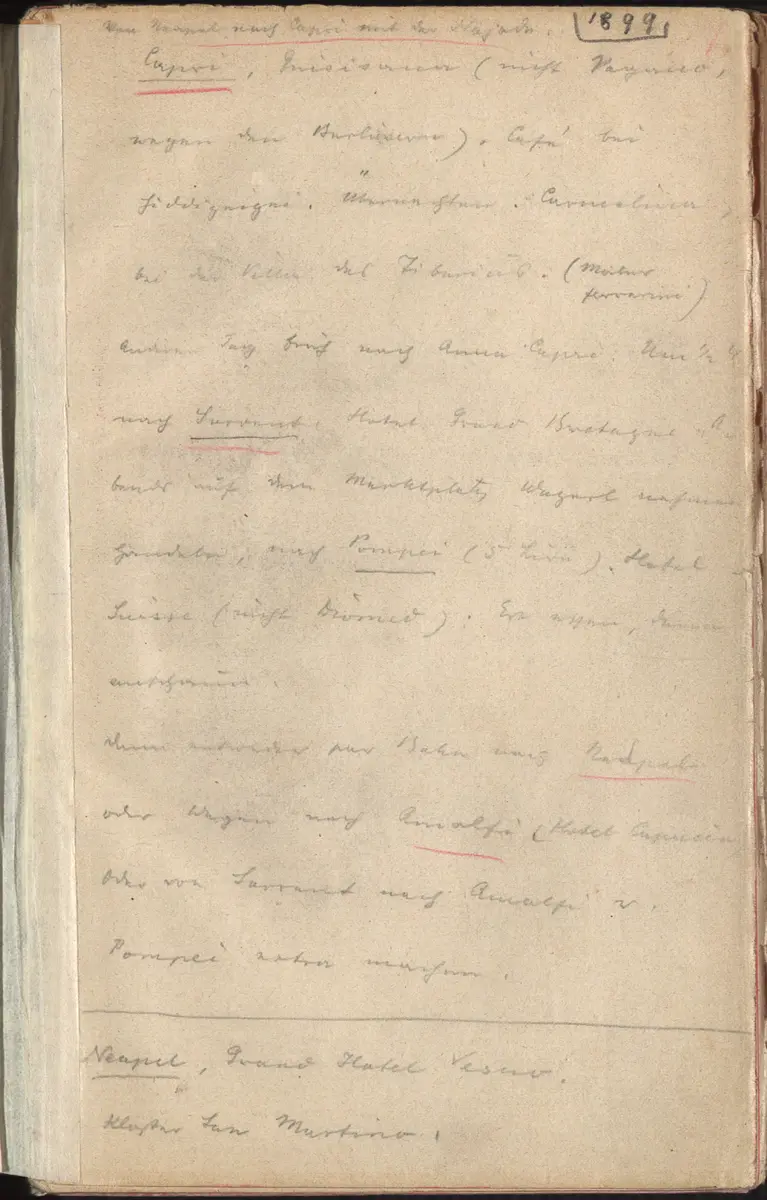 1899.
Von Neapel nach Capri mit der Najade.
Capri, Quisisana (nicht Pagano,
wegen den Berlinern). Café bei
Hiddigeigei. Übernachten. Carmelina,
bei der Villa des Tiberius. (Maler
Ferrarini)
Andern Tag früh nach Anna Capri. Um ½ 4
nach Sorrent. Hotel Grand Bretagne. A-
bends auf dem Marktplatz Wagerl nehmen
handeln, nach Pompei (5 Lire). Hotel
Suisse (nicht Diomed). Erst essen, dann
anschaun.
Dann entweder per Bahn nach Neapel
oder Wagen nach Amalfi (Hotel Capucin
Oder von Sorrent nach Amalfi u.
Pompei extra machen.
Neapel, Grand Hotel Vesuv.
Kloster San Martino.